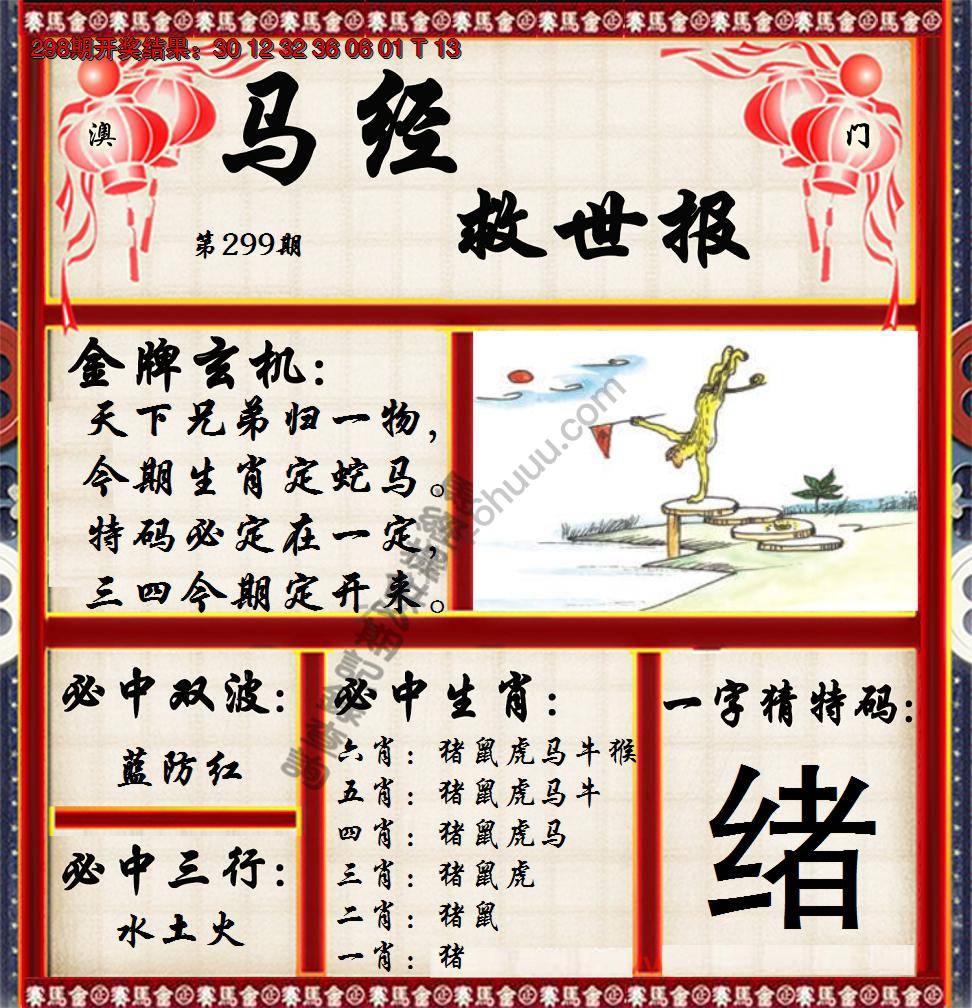 298期开奖结果：30 12 32 36 06 01 T 13
澳
门
马经
救世报
第299期
金牌玄机：
天下兄弟归一物，
今期生肖定蛇马。
特码必定在一定，
三四今期定开来。
必中双波：
蓝防红
必中三行：
水土火
必中生肖：
六肖：猪鼠虎马牛猴
五肖：猪鼠虎马牛
四肖：猪鼠虎马
三肖：猪鼠虎
二肖：猪鼠
一肖：猪
一字猜特码：
绪